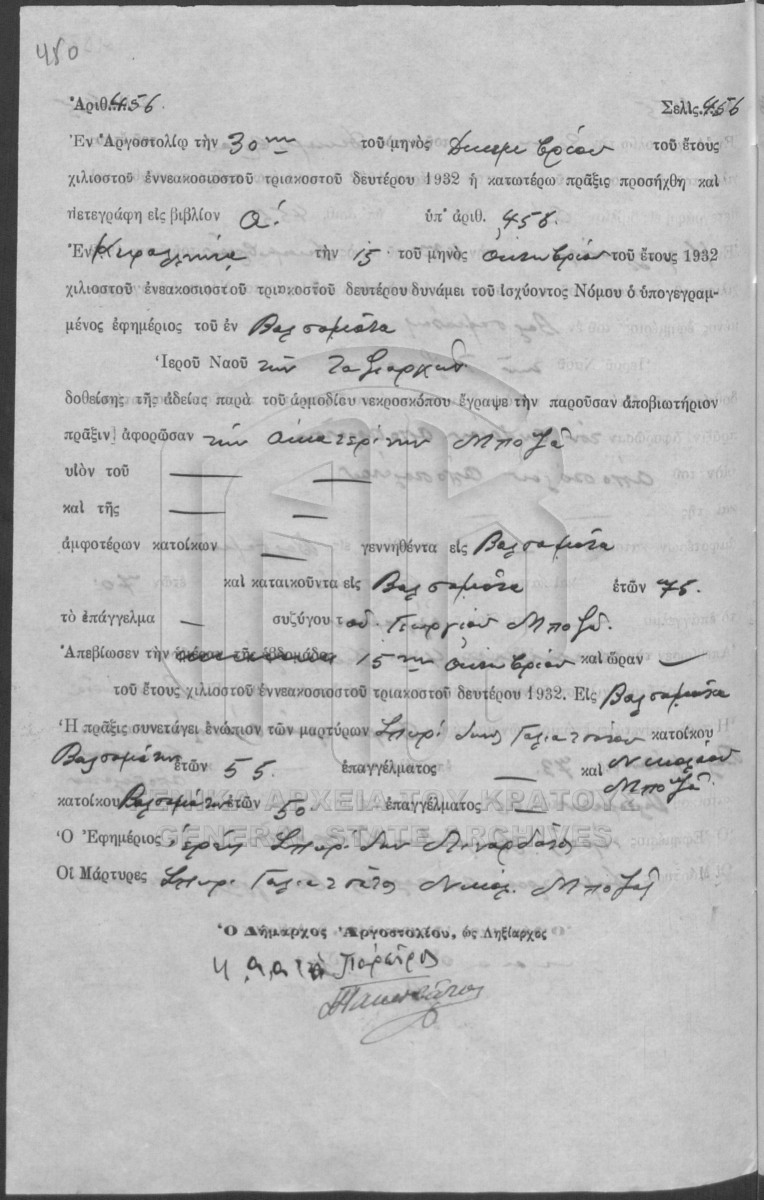 450
Ἀριθ. 456. Σελὶς 456
Ἐν Ἀργοστολίῳ τὴν 30ην τοῦ μηνὸς Δεκεμβρίου τοῦ ἔτους
χιλιοστοῦ ἐννεακοσιοστοῦ τριακοστοῦ δευτέρου 1932 ἡ κατωτέρω πρᾶξις προσήχθη καὶ
μετεγράφη εἰς βιβλίον Α! ὑπ' ἀριθ. 456.
Ἐν Κεφαλληνίᾳ τὴν 15 τοῦ μηνὸς Ὀκτωβρίου τοῦ ἔτους 1932
χιλιοστοῦ ἐνεακοσιοστοῦ τριακοστοῦ δευτέρου δυνάμει τοῦ ἰσχύοντος Νόμου ὁ ὑπογεγραμ-
μένος ἐφημέριος τοῦ ἐν Βαλσαμάτα
Ἱεροῦ Ναοῦ τῶν Ταξιαρχῶν
δοθείσης τῆς ἀδείας παρὰ τοῦ ἁρμοδίου νεκροσκόπου ἔγραψε τὴν παροῦσαν ἀποβιωτήριον
πρᾶξιν ἀφορῶσαν τὴν Αἰκατερίνην Μποζᾶ
υἱὸν τοῦ —
καὶ τῆς —
ἀμφοτέρων κατοίκων — γεννηθέντα εἰς Βαλσαμάτα
καὶ καταικοῦντα εἰς Βαλσαμάτα ἐτῶν 75.
τὸ ἐπάγγελμα — συζύγου τοῦ Γεωργίου Μποζᾶ.
Ἀπεβίωσεν τὴν ἡμέραν τῆς ἑβδομάδος 15ην Ὀκτωβρίου καὶ ὥραν —
τοῦ ἔτους χιλιοστοῦ ἐννεακοσιοστοῦ τριακοστοῦ δευτέρου 1932. Εἰς Βαλσαμάτα
Ἡ πρᾶξις συνετάγει ἐνώπιον τῶν μαρτύρων Σπυρίδωνος Γαλιατσάτου κατοίκου
Βαλσαμάτων ἐτῶν 55. ἐπαγγέλματος — καὶ Νικολάου Μποζᾶ
κατοίκου Βαλσαμάτων ἐτῶν 50. ἐπαγγέλματος —
ΓΕΝΙΚΑ ΑΡΧΕΙΑ ΤΟΥ ΚΡΑΤΟΥΣ
GENERAL STATE ARCHIVES
Ὁ Ἐφημέριος ἱερεὺς Σπυρίδων
Οἱ Μάρτυρες Σπυρ. Γαλιατσάτος Νικόλ. Μποζᾶς
Ὁ Δήμαρχος Ἀργοστολίου, ὡς Ληξίαρχος
Πάρεδρος